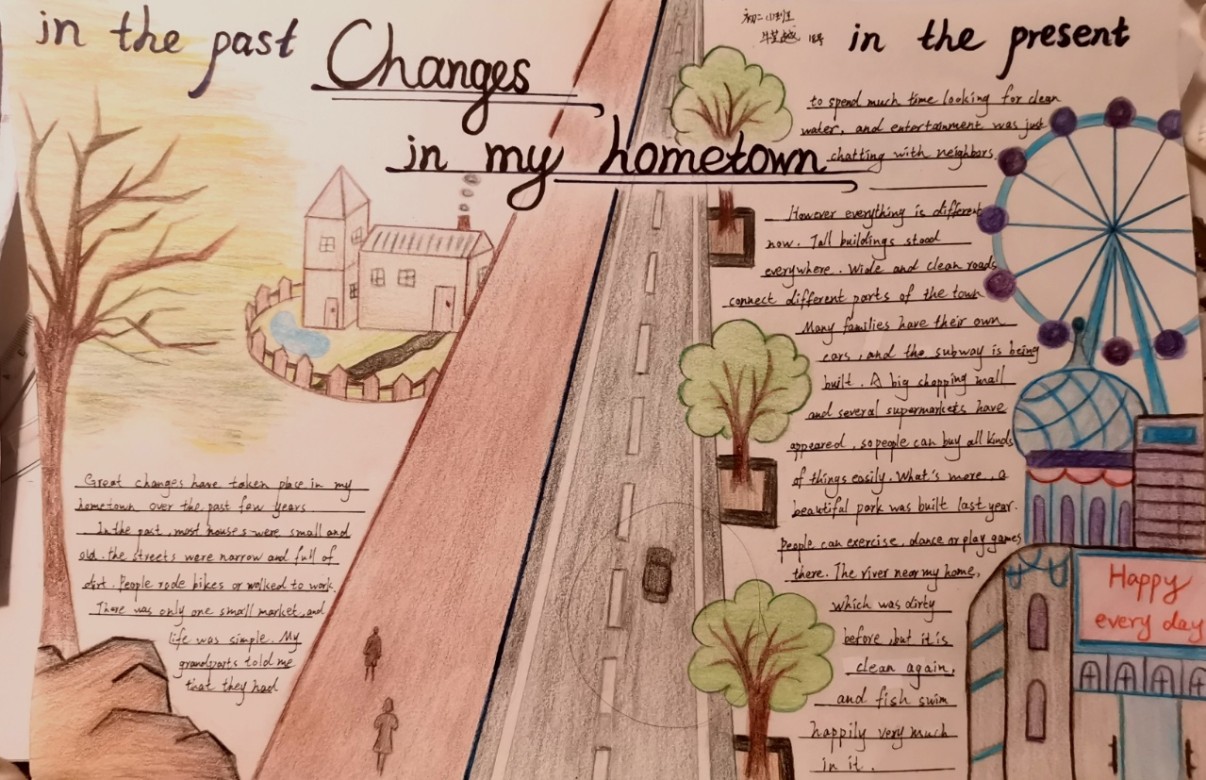 in the past
Changes
in my hometown
in the present
Great changes have taken place in my
hometown over the past few years
In the past, most houses were small and
old, the streets were narrow and full of
dirt. People rode bikes or walked to work.
There was only one small market, and
life was simple. My
grandparts told me
that they had
to spend much time looking for clean
water, and entertainment was just
chatting with neighbors
However everything is different
now. Tall buildings stood
everywhere. Wide and clean roads
connect different parts of the town
Many families have their own
cars, and the subway is being
built. A big shopping mall
and several supermarkets have
appeared, so people can buy all kinds
of things easily. What's more, a
beautiful park was built last year.
People can exercise, dance or play games
there. The river near my home,
which was dirty
before, but it is
clean again,
and fish swim
happily very much
in it.
Happy
every day